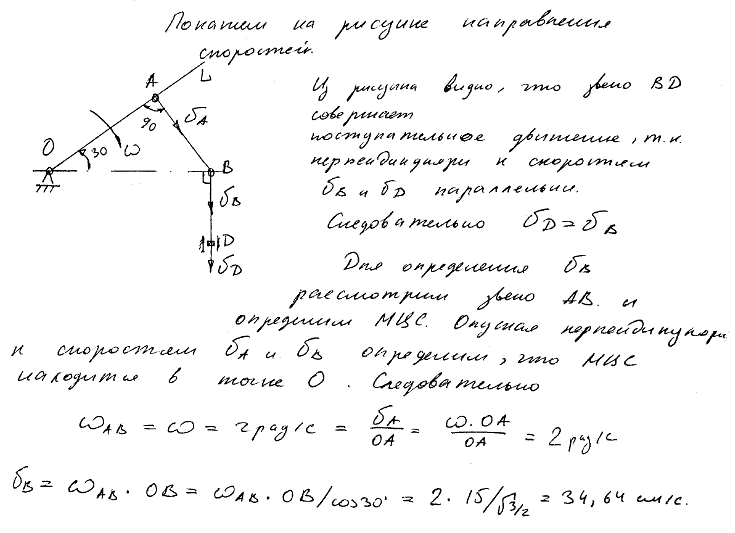 Покажем на рисунке направления
скоростей.
Из рисунка видно, что звено BD
совершает
поступательное движение, т.к.
перпендикуляры к скоростям
υB и υD параллельны.
Следовательно υD = υB
Для определения υB
рассмотрим звено AB. и
определим МЦС. Опуская перпендикуляри
к скоростям υA и υB определим, что МЦС
находится в точке O. Следовательно
ωAB = ω = 2 рад/с = υA/OA = ω·OA/OA = 2 рад/с
υB = ωAB · OB = ωAB · OB/cos30° = 2 · 15/√3/2 = 34,64 см/с.
L
A
90
υA
O
30
ω
B
υB
D
υD